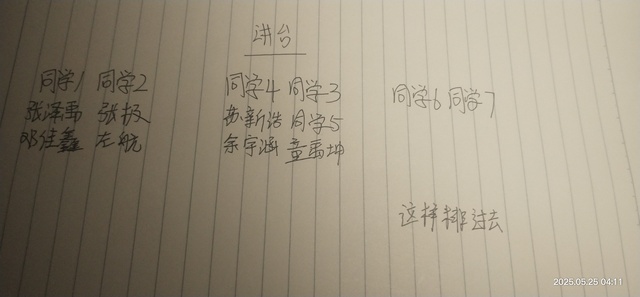 讲台
同学1 同学2 同学4 同学3 同学6 同学7
张泽禹 张极 苏新浩 同学5
邓佳鑫 左航 余宇涵 童禹坤
这样排过去
2025.05.25 04:11